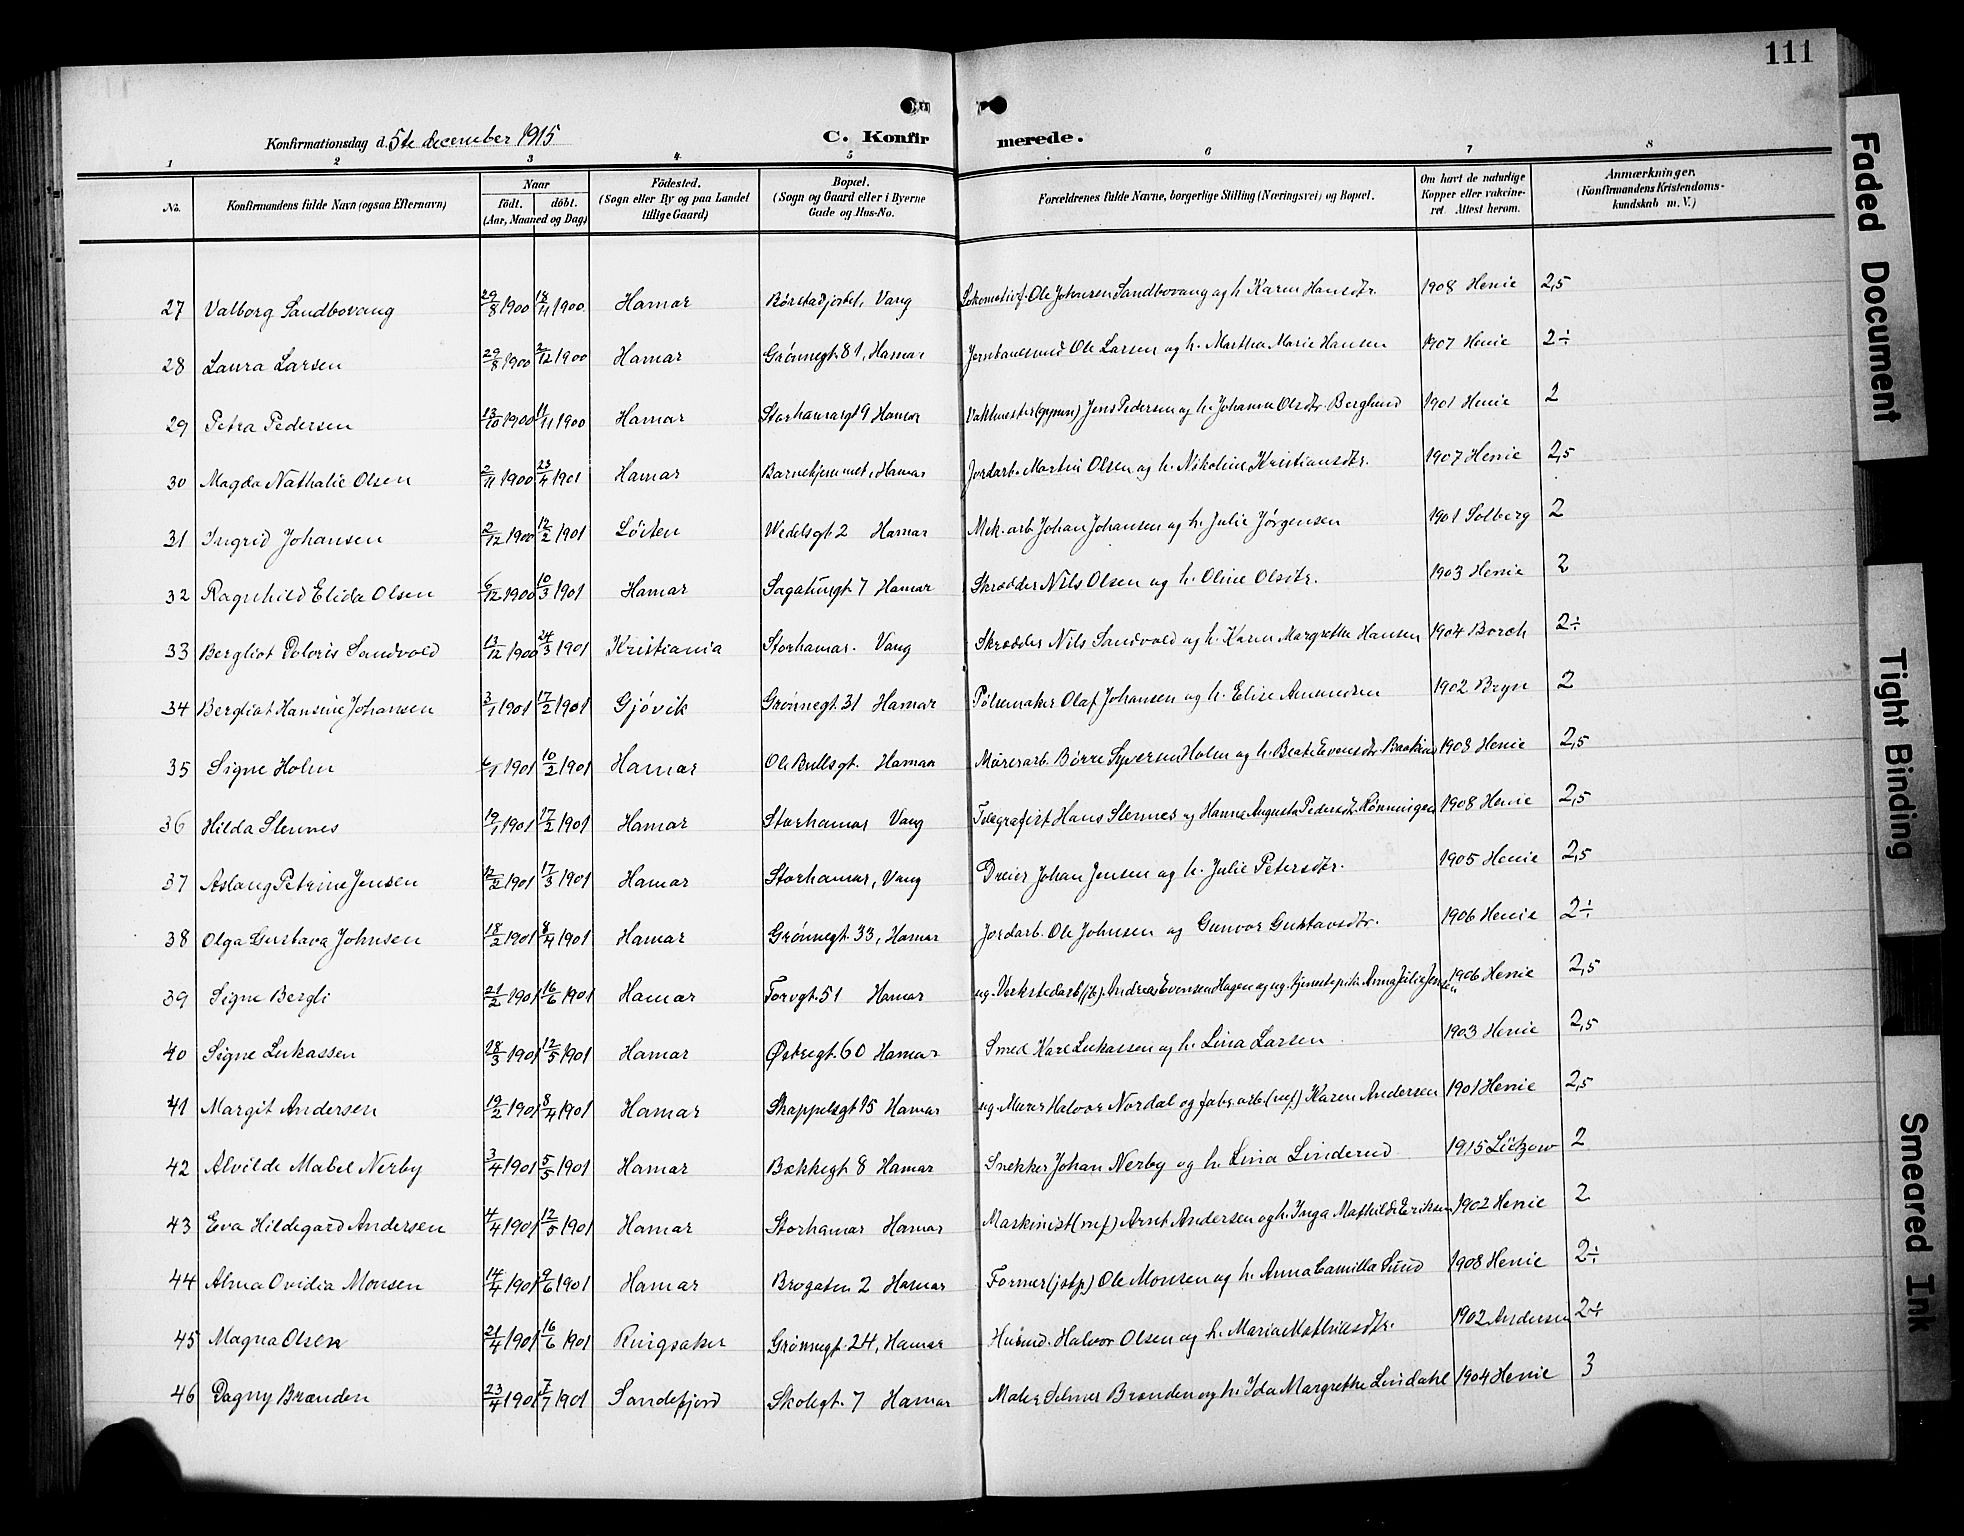 111
Konfirmationsdag d. 5te december 1915
C. Konfir merede.
1 2 3 4 5 6 7 8
No. Konfirmandens fulde Navn (ogsaa Efternavn) Naar født. døbt. (Aar, Maaned og Dag) Födested. (Sogn eller By og paa Landet tillige Gaard) Bopæl. (Sogn og Gaard eller i Byerne Gade og Hus-No. Forældrenes fulde Navne, borgerlige Stilling (Næringsvei) og Bopæl. Om havt de naturlige Kopper eller vakcineret Attest herom. Anmærkninger, (Konfirmandens Kristendomskundskab m. V.)
27 Valborg Sandbovang 29/8 1900 18/11 1900 Hamar Børstadjordet, Vang Lokomotivf. Ole Johansen Sandbovang og h. Karen Hansdtr. 1908 Henie 2,5
28 Laura Larsen 29/8 1900 2/12 1900 Hamar Grønnegt. 81, Hamar Jernbanesmed Ole Larsen og h. Martha Marie Hansen 1907 Henie 2÷
29 Petra Pedersen 13/10 1900 11/11 1900 Hamar Storhamargt 9 Hamar Vaktmester (gymn) Jens Pedersen og h. Johanne Olsdtr. Berglund 1901 Henie 2
30 Magda Nathalie Olsen 2/11 1900 23/4 1901 Hamar Barnehjemmet, Hamar Jordarb. Martin Olsen og h. Nikoline Kristiansdtr. 1907 Henie 2,5
31 Ingrid Johansen 2/12 1900 12/2 1901 Löiten Wedelsgt. 2 Hamar Mek. arb Johan Johansen og h. Julie Jørgensen 1901 Solberg 2
32 Ragnhild Elida Olsen 6/12 1900 10/3 1901 Hamar Sagatungt 7 Hamar Skrædder Nils Olsen og h. Oline Olsdtr. 1903 Henie 2
33 Bergliot Doloris Sandvold 13/12 1900 24/3 1901 Kristiania Storhamar. Vang Skrædder Nils Sandvold og h. Karen Margrethe Hansen 1904 Borch 2÷
34 Bergliot Hansine Johansen 3/1 1901 17/2 1901 Gjøvik Grønnegt. 31 Hamar Pølsemaker Olaf Johansen og h. Elise Amundsen 1902 Bryn 2
35 Signe Holm 1901 10/2 1901 Hamar Ole Bullsgt. Hamar Murerarb. Børre Syversen Holm og h. Beate Evensdtr. 1908 Henie 2,5
36 Hilda Slennes 19/1 1901 17/2 1901 Hamar Storhamar Vang Telegrafist Hans Slennes og Hanna Augusta Pedersdtr. Rønningen 1908 Henie 2,5
37 Aslaug Petrine Jensen 12/2 1901 17/3 1901 Hamar Storhamar, Vang Dreier Johan Jensen og h. Julie Petersdtr. 1905 Henie 2,5
38 Olga Gustava Johnsen 18/2 1901 8/4 1901 Hamar Grønnegt. 33, Hamar Jordarb. Ole Johnsen og Gunvor Gustavsdtr. 1906 Henie 2÷
39 Signe Bergli 21/2 1901 16/6 1901 Hamar Torvgt. 51 Hamar ug. Verkstedarb. Andreas Evensen Hagen og ug. tjenestepike Anna Julie Jensen 1906 Henie 2,5
40 Signe Lukassen 28/3 1901 12/5 1901 Hamar Østregt. 60 Hamar Smed Karl Lukassen og h. Lina Larsen 1903 Henie 2,5
41 Margit Andersen 19/2 1901 8/4 1901 Hamar Skappelsgt 15 Hamar ug. Murer Halvor Nordal og fabr. arb. Karen Andersen 1901 Henie 2,5
42 Alvilde Mabel Nerby 3/4 1901 5/5 1901 Hamar Bækkegt 8 Hamar Snekker Johan Nerby og h. Lina Linderud 1915 Lützow 2
43 Eva Hildegard Andersen 4/4 1901 12/5 1901 Hamar Storhamar Hamar Maskinist Arnt Andersen og h. Inga Mathilde Eriksen 1902 Henie 2
44 Alma Ovidia Monsen 14/4 1901 9/6 1901 Hamar Brogaten 2 Hamar Former (jstp) Ole Monsen og h. Anna Camilla Sund 1908 Henie 2÷
45 Magna Olsen 21/4 1901 16/6 1901 Ringsaker Grønnegt. 24, Hamar Husmd. Halvor Olsen og h. Marie Mathiasdtr. 1902 Andersen 2÷
46 Dagny Brænden 23/4 1901 7/7 1901 Sandefjord Skolegt. 7 Hamar Maler Brænden og h. Ida Margrethe Lindahl 1904 Henie 3
Faded Document
Tight Binding
Smeared Ink